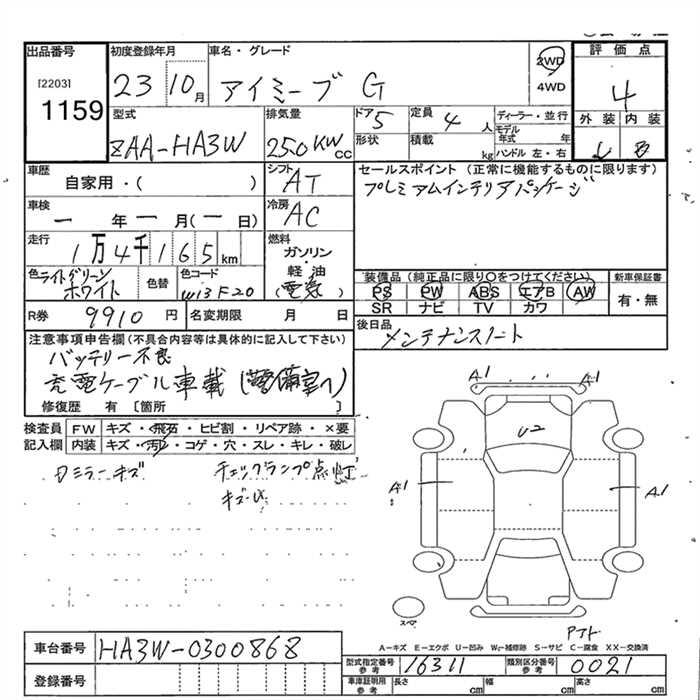 出品番号
[2203]
1159
初度登録年月
23 10月
車名・グレード
アイミーブ G
2WD
4WD
評価点
4
外装 内装
B
型式
ZAA-HA3W
排気量
250KW cc
ドア 5
形状
定員 4 人
積載 kg
ディーラー・並行
モデル年式 年
ハンドル 左・右
車歴
自家用・( )
シフト
AT
車検
一年一月(一日)
冷房
AC
走行
1万4千165km
燃料
ガソリン
・
軽油
(電気)
色 ライトグリーン
ホワイト
色替
色コード
W13F20
セールスポイント (正常に機能するものに限ります)
プレミアムインテリアパッケージ
装備品(純正品に限り〇をつけてください)
PS PW ABS エアB AW
SR ナビ TV カワ
新車保証書
有・無
R券 9910円
名変期限 月 日
後日品
メンテナンスノート
注意事項申告欄(不具合内容等は具体的に記入して下さい)
バッテリー不良
充電ケーブル車載(警備室へ)
修復歴 有〔箇所 〕
検査員
記入欄
FW キズ・飛石・ヒビ割・リペア跡・×要
内装 キズ・汚レ・コゲ・穴・スレ・キレ・破レ
ミラーキズ
チェックランプ点灯
キズ・U
A1
A1
U2
A1
A1
スペ
A-キズ E-エクボ U-凹み W-補修跡 S-サビ C-腐食 XX-交換済
車台番号 HA3W-0300868
登録番号
型式指定番号 参考 16311
類別区分番号 参考 0021
車庫証明用 参考 長さ cm 幅 cm 高さ cm